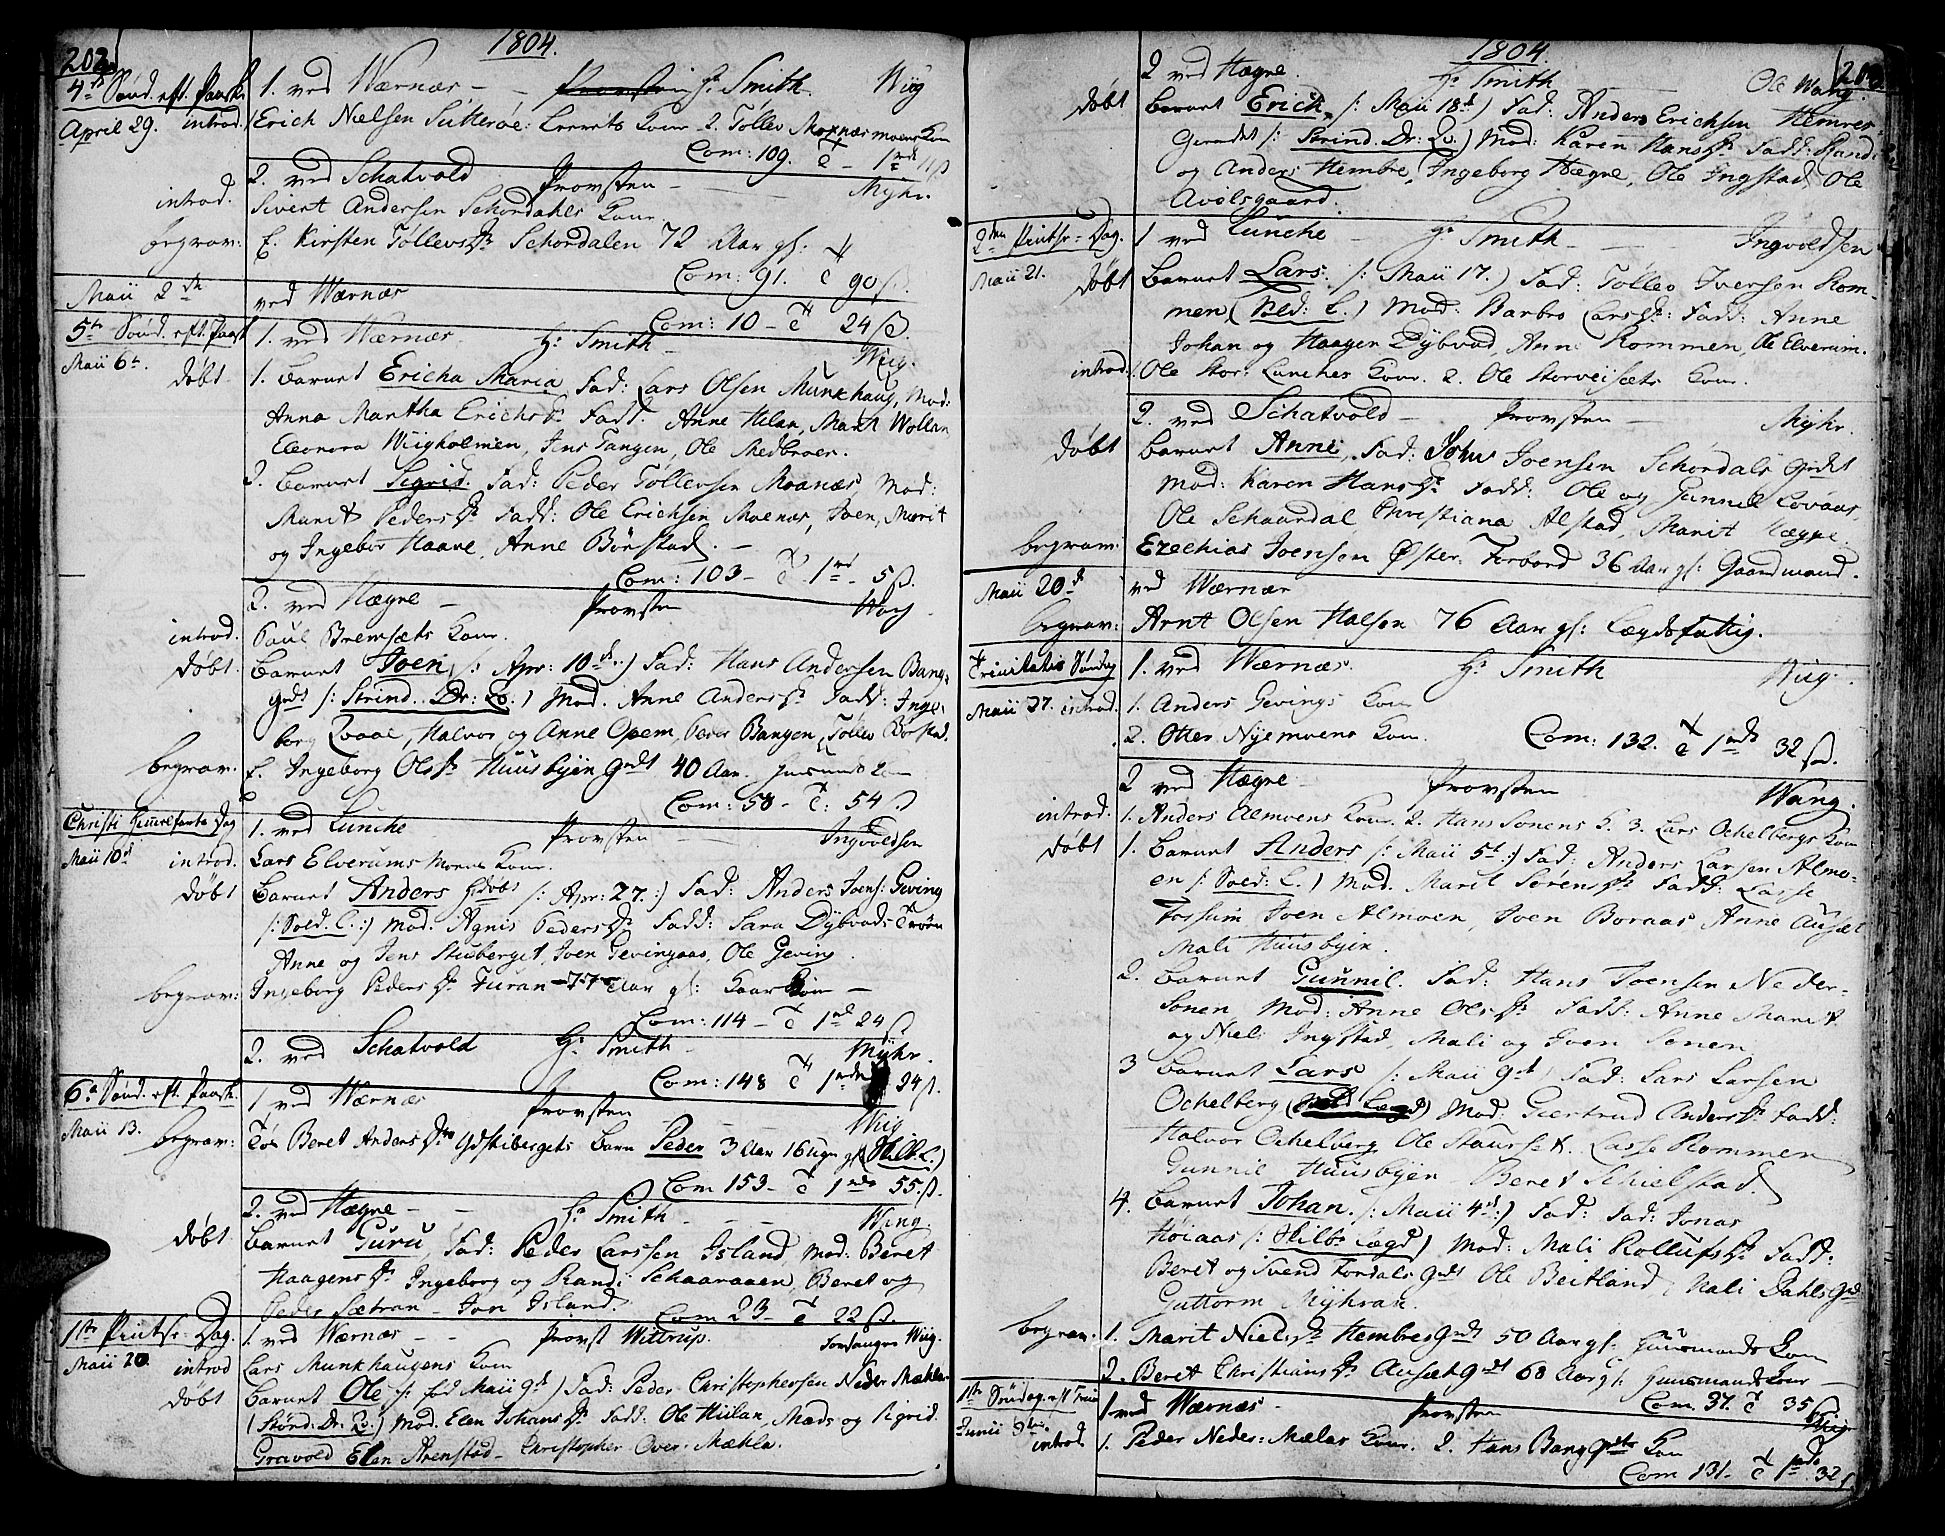 202.
1804.
4de Sønd. eft. Paaske
April 29. introd.
1. ved Wærnæs - - Hr Smith. Wiig
Erich Nielsen Sutterøe: Kone 2. Tøllev Moxnæsmoens Kone
Com: 109. T 1 rd 11 ß
2. ved Schatvold Provsten - Myhr.
introd.
Sivert Andersen Schordahls Kone.
begrav:
E. Kirsten Tøllevsdr Schordalen 72 Aar gl:
Com: 91. T 90 ß.
Maii 2de
ved Wærnæs
Com: 10 - T 24 ß.
5te Sønd. eft. Paask
Maii 6te
1. ved Wærnæs. Hr Smith - Wiig.
døbt
1. Barnet Ericha Maria Fad: Lars Olsen Munkhaug, Mod:
Anna Martha Erichsdr Fadd: Anne Hilan, Marit Wollan
Eleonora Wiigholmen, Jens Tangen, Ole Medbroen.
2. Barnet Sigrid. Fad: Peder Tøllevsen Moxnæs, Mod:
Marit Pedersdr Fadd: Ole Erichsen Moxnæs, Joen, Marit
og Ingebor Haave, Anne Børstad. -
Com: 103 - T 1 rd 5 ß.
2. ved Hægre - Provsten Wang
introd.
Paul Bremsæts Kone.
døbt.
Barnet Joen /: Apr: 10de :/ Fad: Hans Andersen Bang-
grdt /: Strind. Dr: Lv. / Mod. Anne Andersdr Fadd: Inge-
borg Qvaal, Halvor og Anne Opem, Peder Bangen, Tøllev Børstad.
begrav.
E. Ingeborg Olsdr Huusbyengrdt 40 Aar. Huusmands Kone
Com: 58 - T: 54 ß
Christi Himmelfarts Dag
Maii 10de introd.
1. ved Luncke Provsten - Ingvoldsen
Lars Elverums moens Kone.
døbt
Barnet Anders Hdøbt /: Apr: 27. :/ Fad: Anders Joens: Geving
/: Sold. L. :/ Mod: Agnis Pedersdr Fadd: Sara Dybvads Trøen
Anne og Jens Stuberget, Joen Gevingaas, Ole Geving.
begrav:
Ingeborg Pedersdr Furan - 77 Aar gl: -
Com: 114 - T 1 rd 24 ß
2. ved Schatvold Hr Smith - Myhr.
Com: 148 T 1 rd 24 ß.
6te Sønd. eft. Paask.
Maii 13.
1 ved Wærnæs Provsten - - Wiig
begrav:
Beret Andersdr Barn Peder 3 Aar 16 Ugr gl (Hilb. L.)
Com 153 - T 1 rd 55 ß.
2. ved Hægre - - Hr Smith - - Wang.
døbt
Barnet Guru, Fad: Peder Larssen Island, Mod: Beret
Haagensdr Ingeborg og Randi Schaaraaen, Beret og
Peder Sætran - Jon Island.
Com 23 - T 22 ß.
1ste Pintse-Dag.
Maii 20 introd
1. ved Wærnæs - - Provst Wittrup. Forsanger Wiig.
Lars Munkhaugens Kone
døbt
Barnet Ole /: fød Maii 9de / Fad: Peder Christophersen Neder Mæhla
(Strind: Dr. Lv.) Mod. Elen Johansdr Fadd: Ole Hiilan, Mads og Sigrid
Gravold Elen Arenstad - Christopher Over-Mæhla.
1804.
2 ved Hægre. Hr Smith Ole Wang.
døbt
Barnet Erich /: Maii 18de / Fad: Anders Erichsen Hemre-
Grendet /: Strind. Dr: Lv. / Mod: Karen Hansdr Fadd: Randi
og Anders Hembre, Ingeborg Hægre, Ole Ingstad, Ole
Avelsgaard.
2den Pintse-Dag.
Maii 21.
1 ved Luncke - Hr Smith - - Ingvoldsen
døbt
Barnet Lars. /: Maii 17. / Fad: Tøllev Iversen Rom-
men, ( L. ) Mod: Barbro Larsdr: Fadd: Anne
Johan og Haagen Dybvad, Anne Rommen, Ole Elverum.
introd.
Ole Stor: Lunckes Kone. 2. Ole Storveisets Kone.
2. ved Schatvold - Provsten - Myhr.
døbt
Barnet Anne, Fad: John Joensen Schordals grdet
Mod: Karen Hansdr Fadd: Ole og Gunnil Lovaas,
Ole Schaardal Christiana Alstad, Marit Hægre
begrav:
Ezechias Joensen Øster: Forbord 36 Aar gl: Gaardmand.
Maii 20de
ved Wærnæs
begrav:
Arnt Olsen Halsen 76 Aar gl: Lægdsfattig.
Trinitatis Søndag
Maii 27. introd.
1. ved Wærnæs. Hr Smith Wiig.
1. Anders Gevings Kone
2. Otter Nyemoens Kone. Com: 132. T 1 rd 32 ß.
2 ved Hægre Provsten Wang.
introd.
1. Anders Almoens Kone. 2. Hans Sonens K. 3. Lars Ochelbergs Kone
døbt
1. Barnet Anders /: Maii 5te :/ Fad: Anders Larsen Almo-
en /: Sold: L. / Mod. Marit Sørensdr Fadd: Lasse
Fossum Joen Almoen, Joen Boraas Anne Ausæt
Mali Huusbyen.
2. Barnet Gunnil. Fad: Hans Joensen Neder-
Sonen, Mod: Anne Olsdr Fadd: Anne Marit
og Niels Ingstad, Mali og Joen Sonen.
3 Barnet Lars /: Maii 9de Fad: Lars Larsen
Ochelberg Mod: Giertrud Andersdr Fadd:
Halvor Ochelberg Ole Stauset. Lasse Rommen
Gunnil Huusbyen - Beret Schielstad.
4. Barnet Johan. /: Maii 4de :/ Fad: Fad: Jonas
Høiaas /: Hilb: Lægd / Mod: Mali Rollufsdr Fadd:
Beret og Svend Fordalsgrdt Ole Beitland, Mali Dahlsgrd
Guttorm Myhran.
begrav.
1. Marit Nielsdr Hembregrdt 50 Aar gl. Huusmands Kone
2. Beret Christiansdr Ausætgrdt 60 Aar gl: Huusmands Kone -
Com: 37. T 35 ß.
1ste Søndag eft Trin.
Junii 3die introd.
1 ved Wærnæs - Provsten Wiig
1. Peder Neder: Mælas Kone. 2. Hans Banggrdts Kone
Com 131 - T 1 rd 32 ß